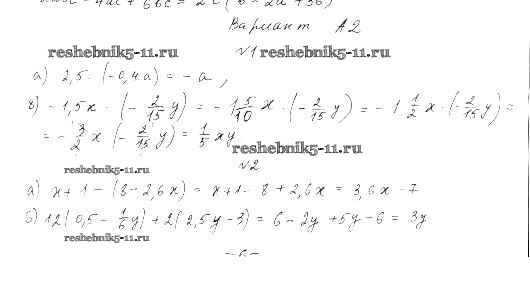 Вариант А2
reshebnik5-11.ru №1 reshebnik5-11.ru
а) 2,5 · (-0,4a) = -a,
в) -1,5x · (-2/15 y) = -1 5/10 x · (-2/15 y) = -1 1/2 x · (-2/15 y) =
= -3/2 x (-2/15 y) = 1/5 xy
reshebnik5-11.ru
reshebnik5-11.ru №2
а) x+1-(8-2,6x) = x+1-8+2,6x = 3,6x-7
б) 12(0,5-1/6 y)+2(2,5y-3) = 6-2y+5y-6 = 3y
reshebnik5-11.ru